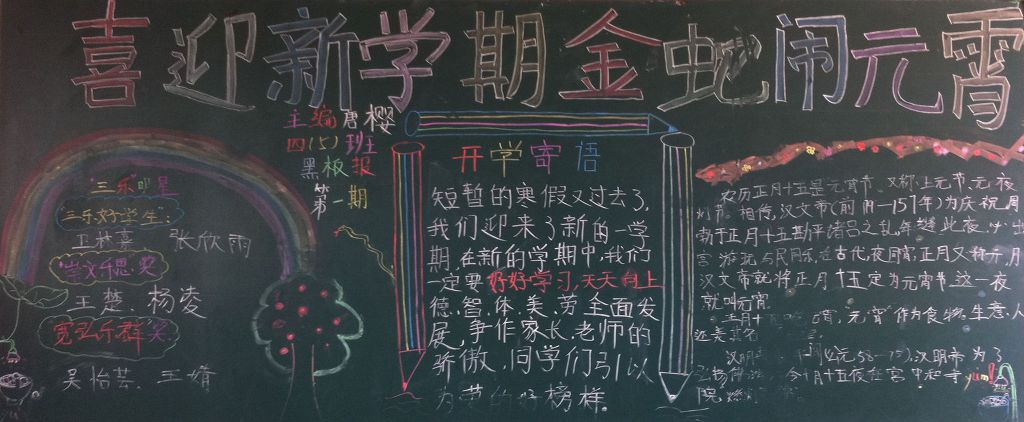 喜迎新学期金蛇闹元宵
主编唐樱
四(5)班
黑板报
第一期
"三乐"明星
"三乐好学生":
王梦喜 张欣雨
奖
王楚、杨凌
奖:
吴怡芸、王婧
开学寄语
短暂的寒假又过去了,
我们迎来了新的一学
期,在新的学期中,我们
一定要好好学习,天天向上
德、智、体、美、劳全面发
展,争作家长、老师的
骄傲,同学们引以
为范的好榜样。
农历正月十五是元宵节,又称上元节、元夜、
灯节。相传,汉文帝(前179—157年)为庆祝周
勃于正月十五勘平诸吕之乱,每逢此夜,必出
宫游玩,与民同乐,在古代,夜同宵,正月又称元月,
汉文帝就将正月十五定为元宵节,这一夜
就叫元宵。
正月十 宵,元宵作为食物,生意人
还美其名
汉明 (公元 ),汉明帝为了
令正月十五夜在宫中和寺
院 燃灯
yum!